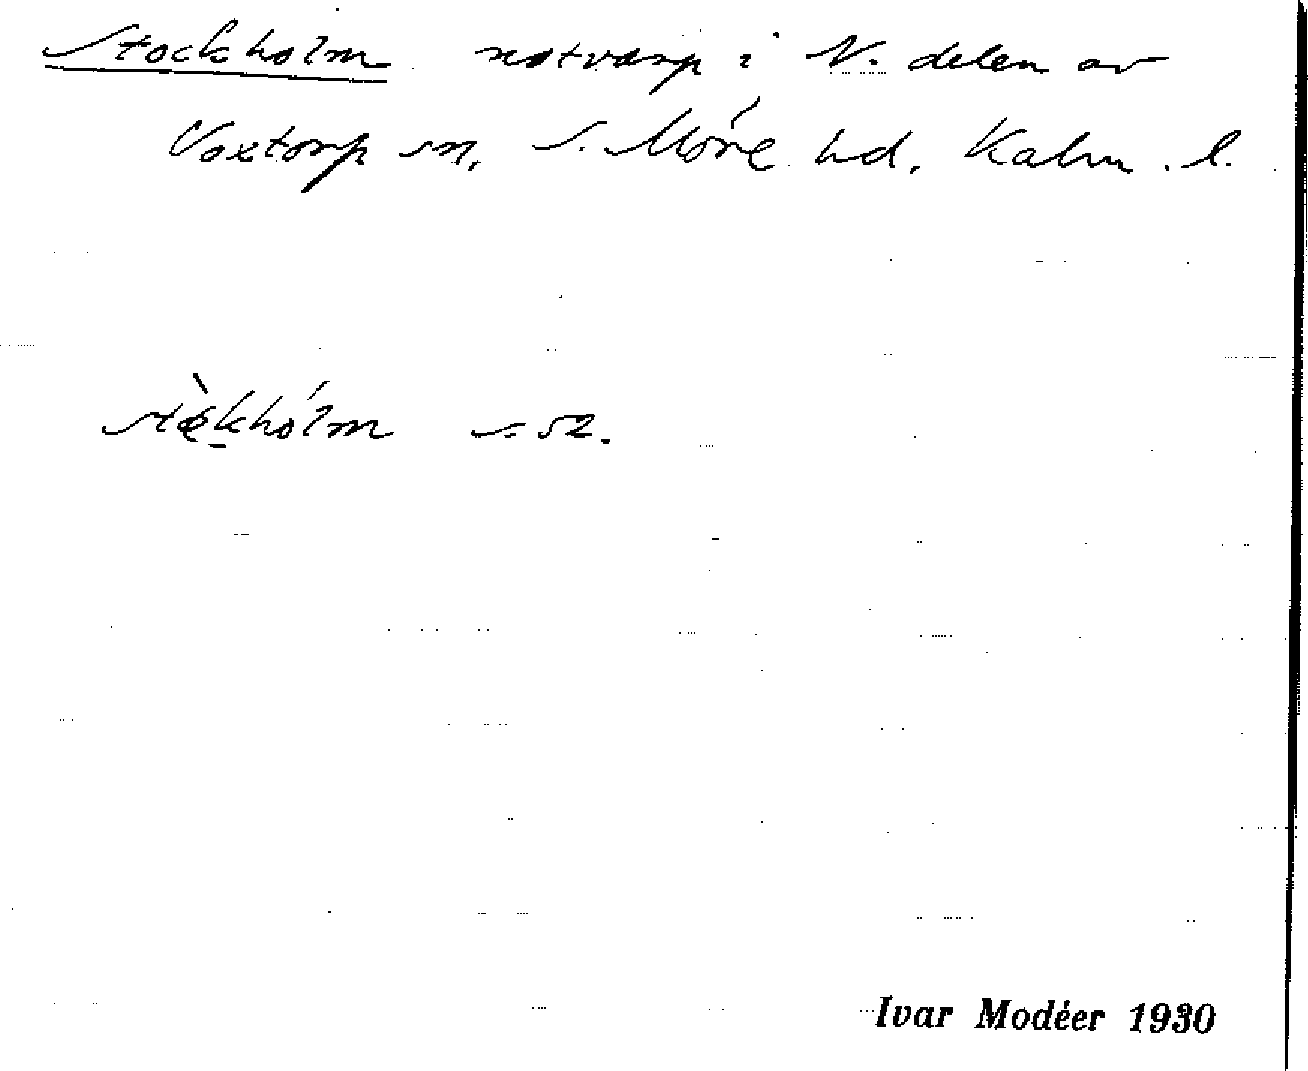 Stockholm notvarp i N. delen av
Voxtorp sn, S. Möre hd, Kalm. l.
s. 52.
Ivar Modéer 1930